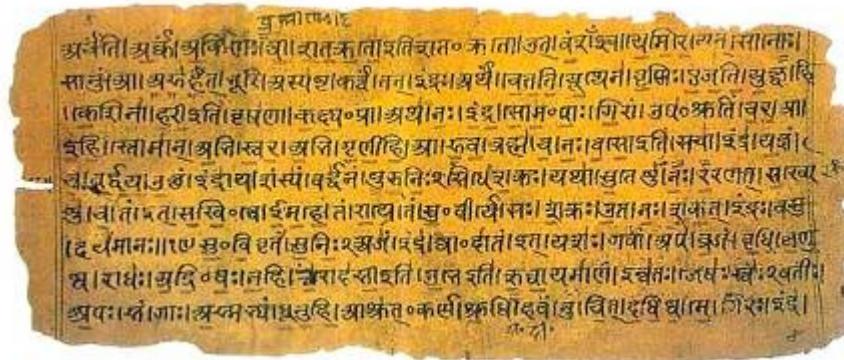 अर्चंति।अर्कं।अर्किणः।त्वा।शतक्रतो इति शत०क्रतो।उत्।वंशंऽइव।येमिरे।यत्।सानोः।
सानुं।आ।अरुहत्।भूरि।अस्पष्ट।कर्त्वं।तत्।इंद्रः।अर्थं।चेतति।यूथेन।वृष्णिः।एजति।युक्ष्व।हि
।केशिना।हरी इति।वृषणा।कक्ष्य०प्रा।अथ।नः।इंद्र।सोम०पाः।गिरां।उप०श्रुतिं।चर।आ।
इहि।स्तोमान्।अभि।स्वर।अभि।गृणीहि।आ।रुव।ब्रह्म।च।नः।वसो इति।सचा।इंद्र।यज्ञं।
च।वर्द्धय।उक्थं।इंद्राय।शंस्यं।वर्द्धनं।पुरुनिःऽसिधे।शक्रः।यथा।सुतेषु।नः।ररणत्।सख्ये
षु।च।तं।इत्।सखि०त्वे।ईमहे।तं।राये।तं।सु०वीर्ये।सः।शक्रः।उत।नः।शकत्।इंद्रः।वसु
।दयमानः॥१९ सु०विवृतं।सुनिःऽअजं।इंद्र।त्वा०दातं।इत्।यशः।गवां।अप।व्रजं।वृधि।कृणु
ष्व।राधः।अद्रि०वः।नहि।त्वा।रोदसी इति।उभे इति।ऋघायमाणं।इन्वतः।जेषः।स्वःऽवतीः।
अपः।सं।गाः।अस्मभ्यं।धूनुहि।आश्रुत्०कर्ण।श्रुधि।हवं।नु।चित्।दधिष्व।मे।गिरः।इंद्र।